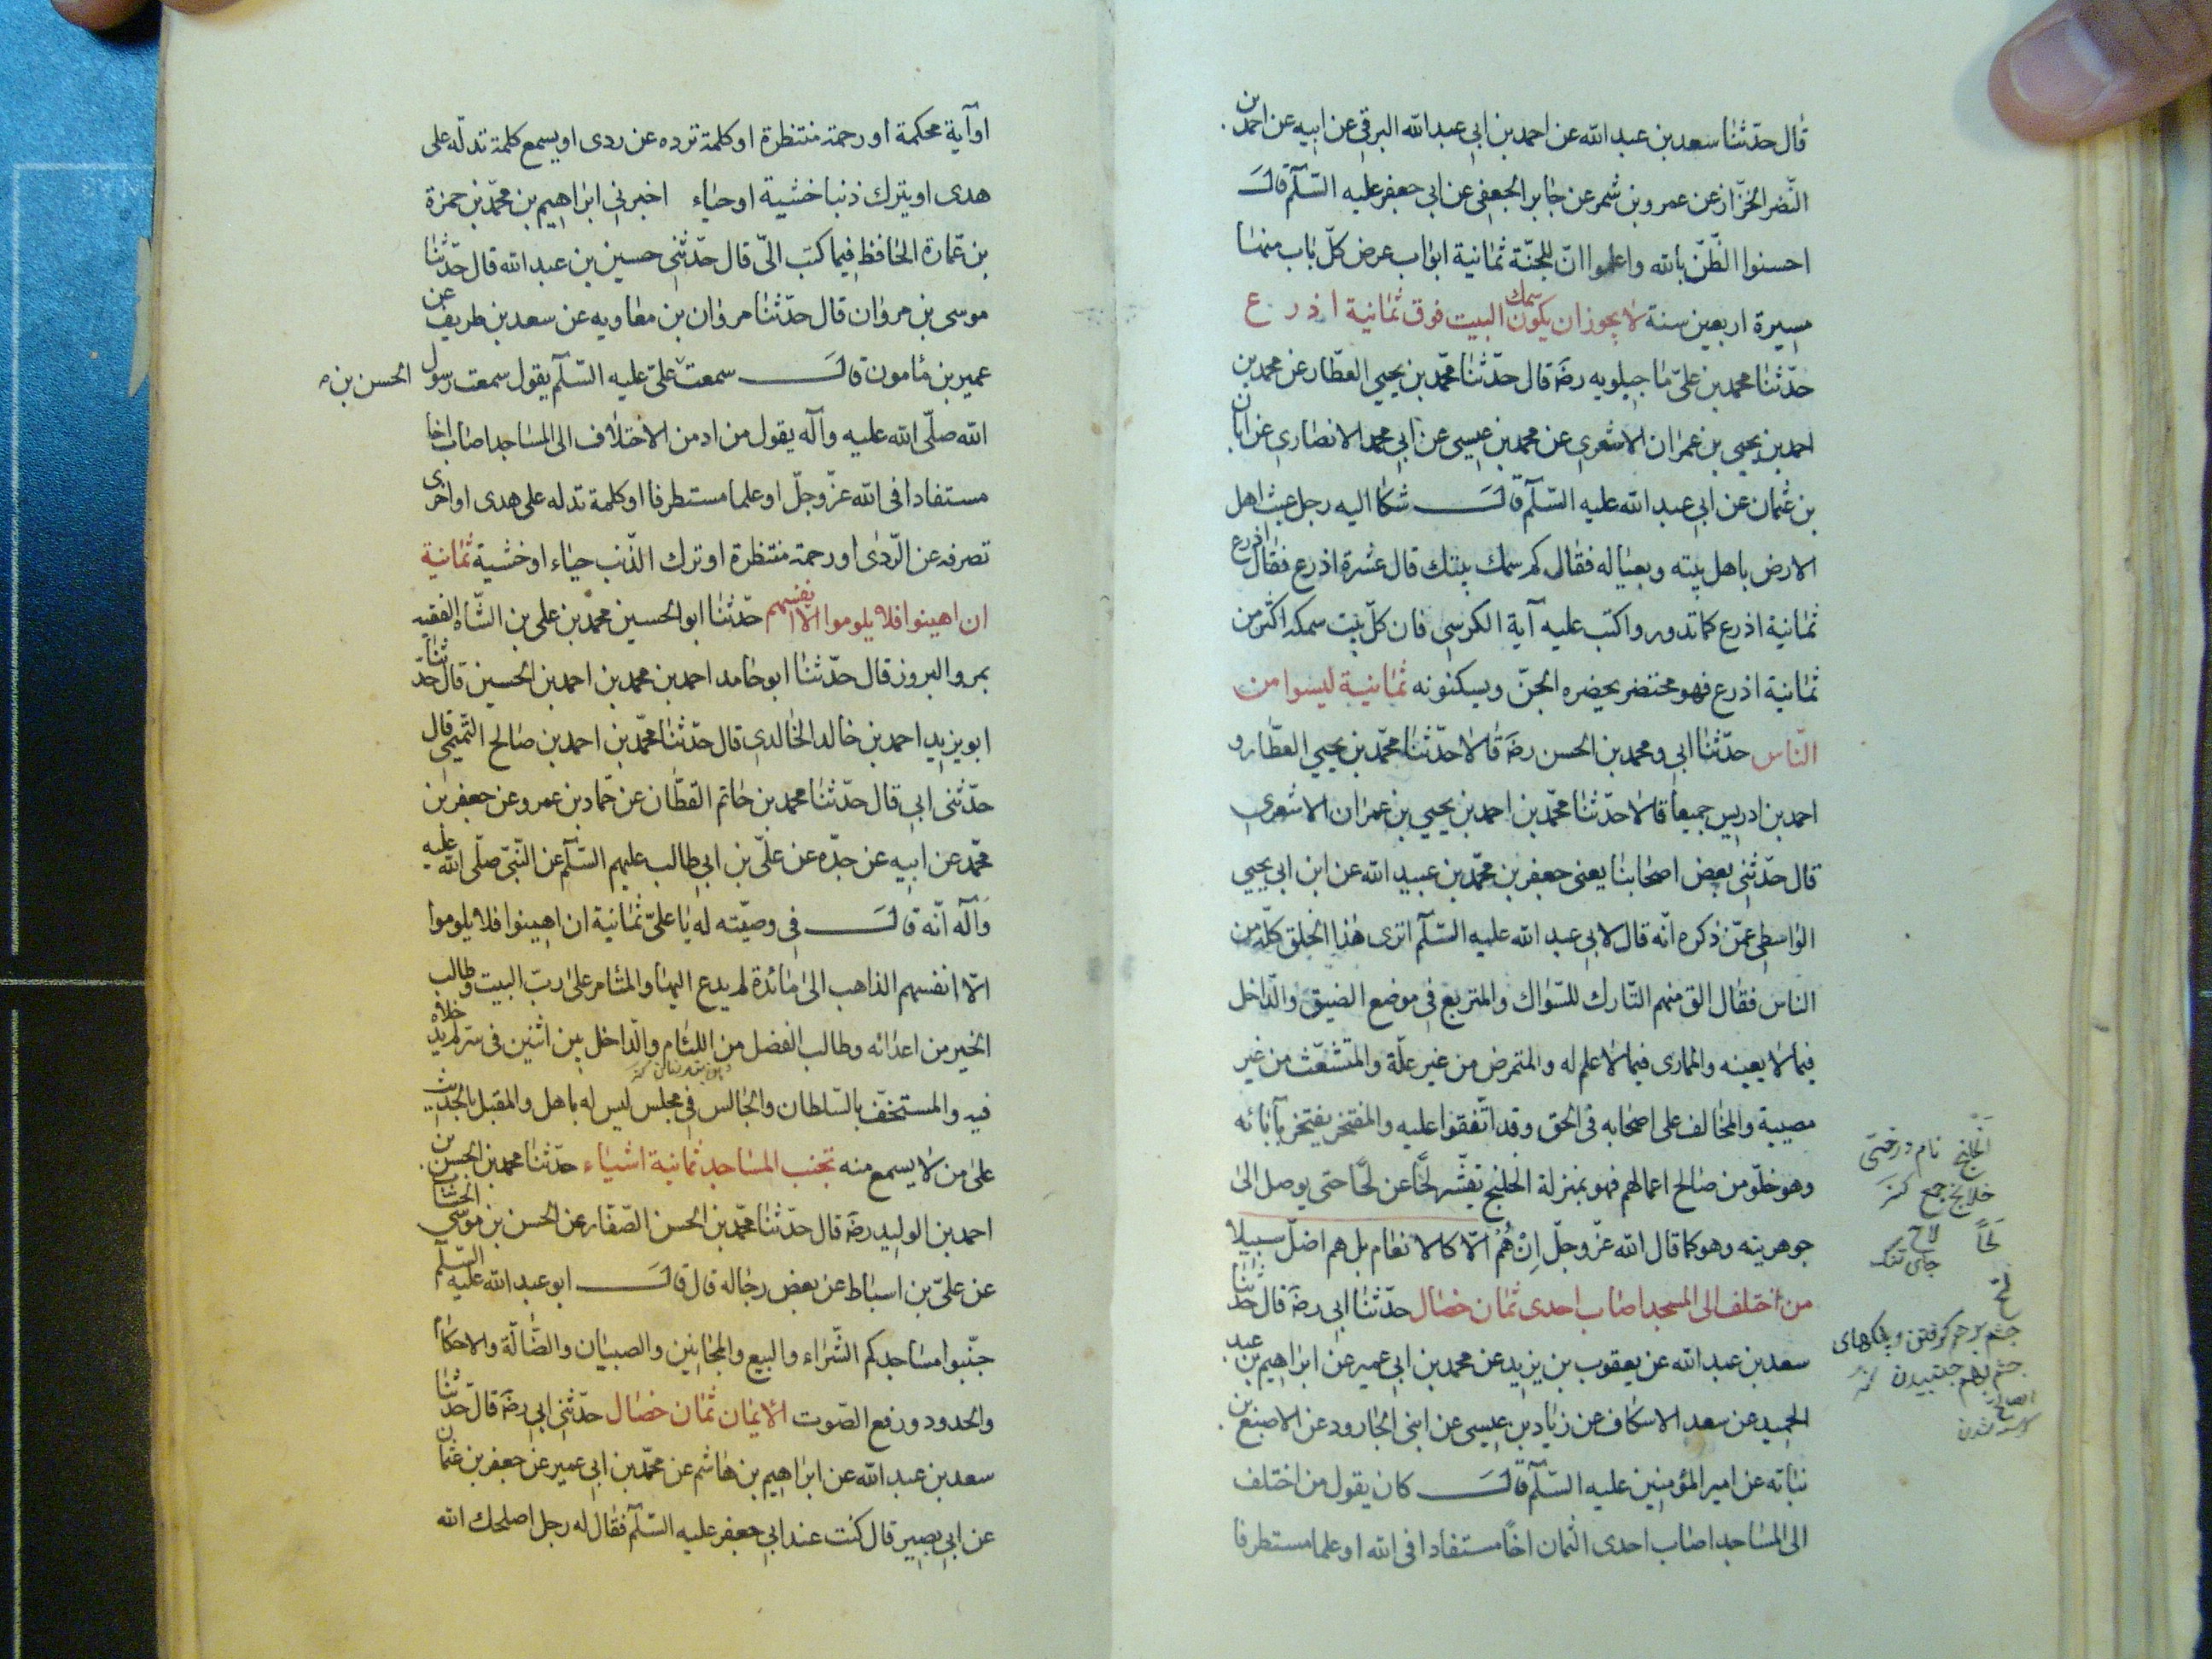 قال حدّثنا سعد بن عبد الله عن احمد بن ابي عبد الله البرقي عن ابيه عن احمد بن
النّضر الخزّاز عن عمرو بن شمر عن جابر الجعفى عن ابي جعفر عليه السّلم قال
احسنوا الظّنّ بالله واعلموا انّ للجنّة ثمانية ابواب عرض كلّ باب منها
مسيرة اربعين سنة لا يجوز ان يكون سمك البيت فوق ثمانية اذرع
حدّثنا محمد بن علىّ ماجيلويه رضه قال حدّثنا محمّد بن يحيي العطّار عن محمد بن
احمد بن يحيي بن عمران الاشعرى عن محمد بن عيسى عن ابي محمد الانصارى عن ابان
بن عثمان عن ابي عبد الله عليه السّلم قال شكا اليه رجل عبث اهل
الارض باهل بيته وبعياله فقال كم سمك بيتك قال عشرة اذرع فقال اذرع
ثمانية اذرع كما تدور واكتب عليه آية الكرسى فان كلّ بيت سمكه اكثر من
ثمانية اذرع فهو محتضر يحضره الجنّ ويسكنونه ثمانية ليسوا من
النّاس حدّثنا ابي ومحمد بن الحسن رضه قالا حدّثنا محمّد بن يحيي العطّار و
احمد بن ادريس جميعا قالا حدّثنا محمّد بن احمد بن يحيي بن عمران الاشعرى
قال حدّثنى بعض اصحابنا يعنى جعفر بن محمّد بن عبيد الله عن ابن ابي يحيي
الواسطى عمّن ذكره انّه قال لابي عبد الله عليه السّلم اترى هذا الخلق كلّه من
الناس فقال الق منهم التّارك للسّواك والمتربع في موضع الضيق والدّاخل
فيما لا يعينه والممارى فيما لا علم له والمتمرض من غير علّة والمتشعّث من غير
مصيبة والمخالف على اصحابه فى الحق وقد اتّفقوا عليه والمفتخر يفتخر بآبائه
وهو خلّو من صالح اعمالهم فهو بمنزلة الخلنج يقشّر لحًا عن لحًا حتى يوصل الى
جوهريته وهو كما قال الله عزّ وجلّ اِنْ هُمْ الّا كالانعام بل هم اضلّ سبيلا
من اختلف الى المسجد اصاب احدى ثمان خصال حدّثنا ابي رضه قال حدّثنا
سعد بن عبد الله عن يعقوب بن يزيد عن محمد بن ابي عمير عن ابراهيم بن عبد
الحميد عن سعد الاسكاف عن زياد بن عيسى عن ابى الجارود عن الاصبغ بن
نباته عن امير المؤمنين عليه السّلم قال كان يقول من اختلف
الى المساجد اصاب احدى الثمان اخًا مستفادا فى الله او علما مستطرفا
الخلنج نام درختى
خلانج جمع كنز
لحًا
جاى تنك
او آية محكمة او رحمة منتظرة او كلمة ترده عن ردى او يسمع كلمة تدلّه على
هدى او يترك ذنبا خشية او حياء اخبرنى ابراهيم بن محمّد بن حمزة
بن عمّارة الحافظ فيما كتب الىّ قال حدّثنى حسين بن عبد الله قال حدّثنا
موسى بن مروان قال حدّثنا مروان بن معاويه عن سعد بن طريف عن
عمير بن مأمون قال سمعت علىّ عليه السّلم يقول سمعت رسول
الحسن بن
الله صلّى الله عليه وآله يقول من ادمن الاختلاف الى المساجد اصاب اخا
مستفادا فى الله عزّ وجلّ او علما مستطرفا او كلمة تدله على هدى او اخرى
تصرفه عن الرّدى او رحمة منتظرة او ترك الذّنب حياء او خشية ثمانية
ان اهينوا فلا يلوموا الا انفسهم حدّثنا ابو الحسين محمد بن على بن الشّاه الفقيه
بمرو الروز قال حدّثنا ابو حامد احمد بن محمد بن احمد بن الحسين قال حدّثنا
ابو يزيد احمد بن خالد الخالدى قال حدّثنا محمّد بن احمد بن صالح التّميمى قال
حدّثنى ابى قال حدّثنا محمد بن حاتم القطّان عن حمّاد بن عمرو عن جعفر بن
محمّد عن ابيه عن جدّه عن علىّ بن ابي طالب عليهم السّلم عن النّبىّ صلّى الله عليه
وآله انّه قال فى وصيّته له يا علىّ ثمانية ان اهينوا فلا يلوموا
الّا انفسهم الذاهب الى مائدة لم يدع اليها والمتامر على ربّ البيت وطالب
الخير من اعدائه وطالب الفضل من اللئام والدّاخل بين اثنين فى سرّ لم يدخلاه
فيه والمستخفّ بالسّلطان والجالس فى مجلس ليس له باهل والمقبل بالحديث
على من لا يسمع منه تجنب المساجد ثمانية اشياء حدّثنا محمد بن الحسن بن
احمد بن الوليد رضه قال حدّثنا محمّد بن الحسن الصّفّار عن الحسن بن موسى الخشاب
عن علىّ بن اسباط عن بعض رجاله قال قال ابو عبد الله عليه السّلم
جنّبوا مساجدكم الشّراء والبيع والمجانين والصبيان والضّالّة والاحكام
والحدود ورفع الصّوت الايمان ثمان خصال حدّثنى ابي رضه قال حدّثنا
سعد بن عبد الله عن ابراهيم بن هاشم عن محمّد بن ابي عمير عن جعفر بن عثمان
عن ابي بصير قال كنت عند ابي جعفر عليه السّلم فقال له رجل اصلحك الله